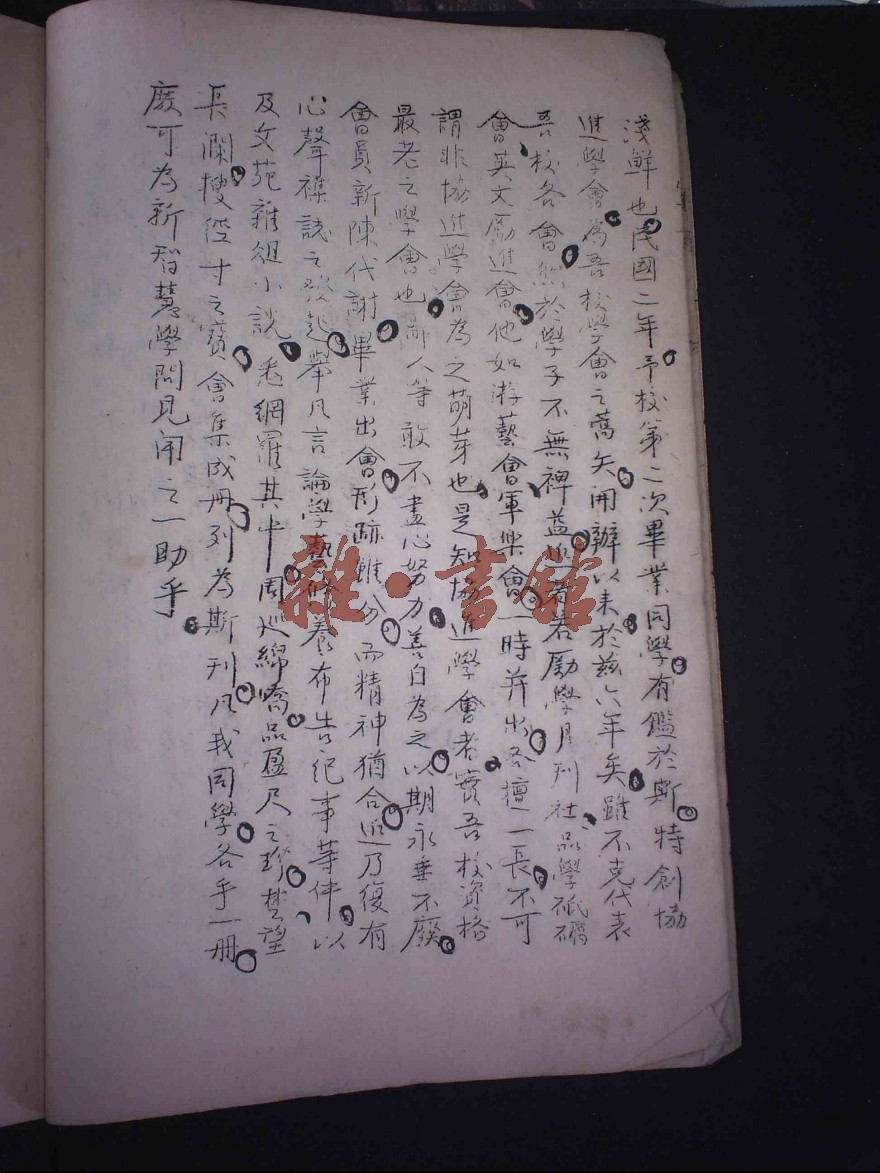 淺鮮也民國二年予校第二次畢業同學有鑑於斯特創協
進學會為吾校學會之蒿矢開辦以來於茲六年矣雖不克代表
吾校各會然於學子不無裨益近者若勵學月刊社品學砥礪
會英文勵進會他如游藝會軍樂會一時并出各擅一長不可
謂非協進學會為之萌芽也是知協進學會者實吾校資格
最老之學會也同人等敢不盡心努力善自為之以期永垂不廢
會員新陳代謝畢業出會形跡雖分而精神猶合近乃復有
心聲襍誌之發起舉凡言論學藝修養布告紀事等件以
及文苑雜俎小說悉網羅其中周巡綿嶠品盈尺之珍楚望
長瀾搜徑寸之寶會集成册列為斯刊凡我同學各手一册
庶可為新智慧學問見聞之一助乎
雜·書館